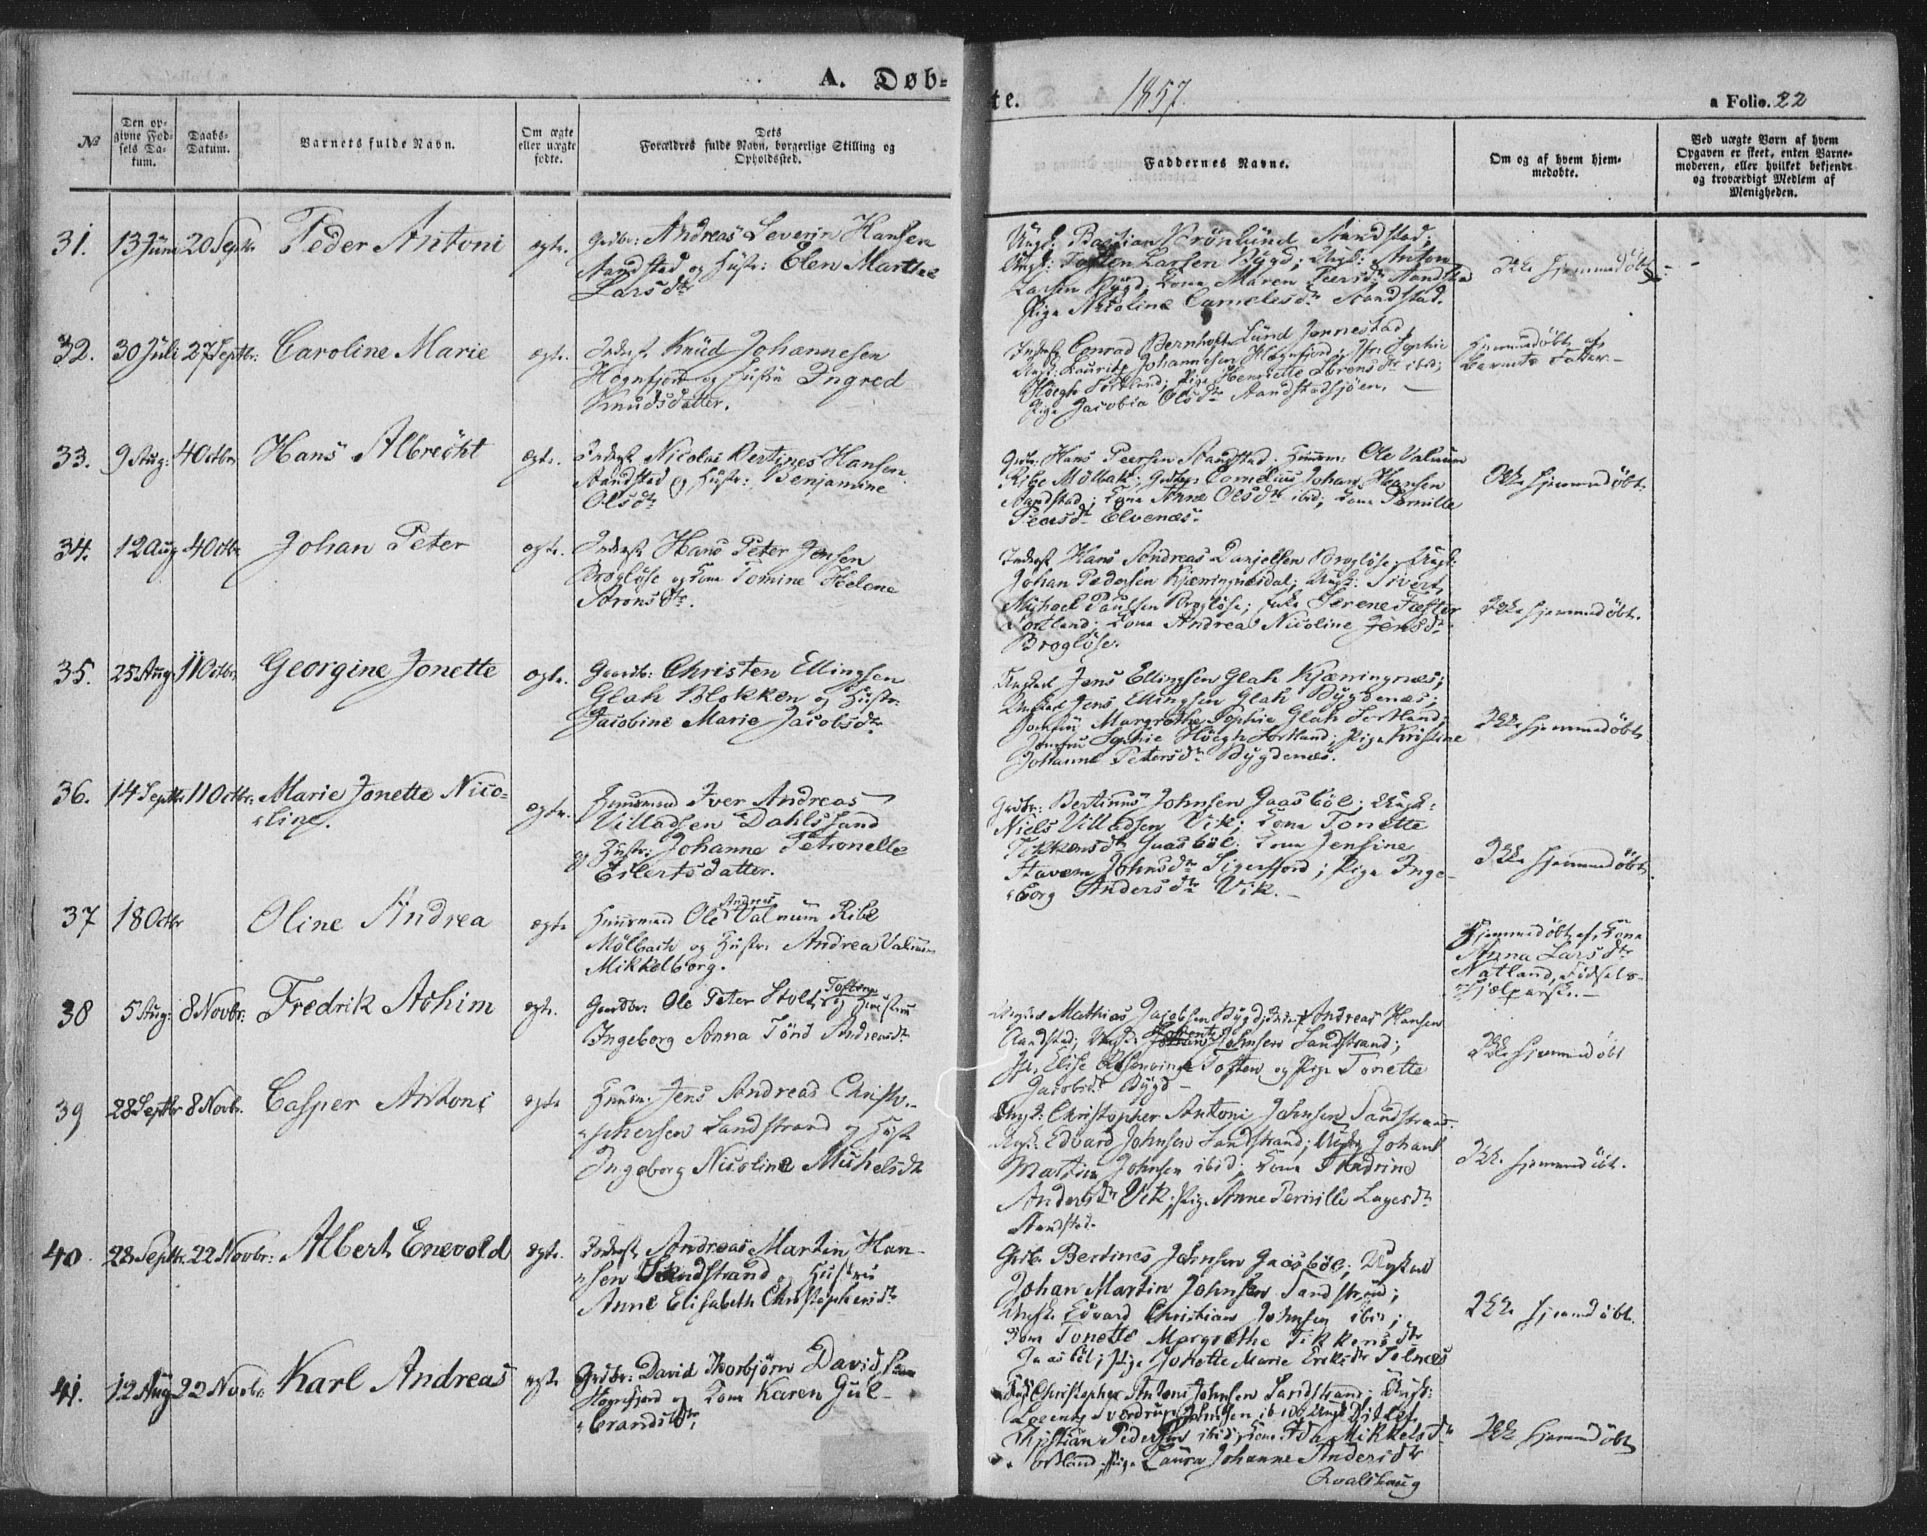 A. Døb-
te. 1857. a Folio. 22
№
Den op-
givne Fød-
sels Da-
tum.
Daabs-
Datum.
Barnets fulde Navn.
Om ægte
eller uægte
fødte.
Dets
Forældres fulde Navn, borgerlige Stilling og
Opholdssted.
Faddernes Navne.
Om og af hvem hjem-
medøbte.
Ved uægte Børn af hvem
Opgaven er skeet, enten Barne-
moderen, eller hvilket bekjendt
og troværdigt Medlem af
Menigheden.
31. 13 Juni 20 Septbr Peder Antoni ægte. Grdbr: Andreas Severin Hansen
Sandstad og Hustr: Elen Marthe
Larsdtr
Ungk: Bastian Krönlund Sandstad;
Ungk: Larsen Bygd; Ungk: Anton
Larsen Bygd; Kona Maren Peersdtr Sandstad
Pige Nicoline Cornelesdtr Sandstad.
Ikke hjemmedøbt
32. 30 Juli 27 Septbr: Caroline Marie ægte. Inderst Knud Johannesen
Hognfjord og Hustru Ingred
Knudsdatter.
Inderst Conrad Bernhoft Lund Jennestad,
Ungk: Lauritz Johannesen Hognfjord; Jfr. Sophie
Höegh Sortland; Pige Henriette Sörensdtr ibid;
Pige Jacobia Olsdtr Sandstadsjöen.
Hjemmedøbt af
Barnets Fader.
33. 9 Aug: 4 Octbr Hans Albrecht ægte. Inderst Nicolai Bertines Hansen
Sandstad og Hustr: Benjamine
Olsdtr
Grdbr: Hans Peersen Sandstad. Huusm: Ole Valnum
Ribe Mölbak; Cornelius Johan Hansen
Sandstad; Kona Anne Olsdtr ibid; Kona Pernille
Peersdtr Elvenæs.
Ikke hjemmedøbt.
34. 12 Aug 4 Octbr Johan Peter ægte. Inderst Hans Peter Jensen
Brogløse og Kona Tomine Helene
Aronsdtr.
Inderst Hans Andreas Danjelsen Brogløse; Ungk:
Johan Pedersen Kjærringnesdal; Ungk: Sivert
Michael Paulsen Brogløse; Enke Serene Fæster
Sortland; Kona Andrea Nicoline Jensdtr
Brogløse.
Ikke hjemmedøbt.
35. 25 Aug 11 Octbr. Georgine Jonette ægte. Gaardbr: Christen Ellingsen
Glah Blokken og Hustr.
Jacobine Marie Jacobsdtr
Ungkarl Jens Ellingsen Glah Kjærringnes;
Ungkarl Jens Ellingsen Glah Bygdenæs;
Jomfru Margrethe Sophie Glah Sortland;
Jomfru Sophie Höegh Sortland; Pige Kristine
Johanne Petersdtr Bygdenæs.
Ikke hjemmedøbt
36. 14 Septbr 11 Octbr: Marie Jonette Nico-
line. ægte. Huusmand Iver Andreas
Villadsen Dahlssand
og Hustr: Johanne Petronelle
Eilertsdatter.
Grdbr: Bertinus Johnsen Gaasböl; Ungk:
Niels Villadsen Vik; Kona Tonette
Tikkensdtr Gaasböl; Kona Jensine
Stavem Johnsdtr Sigerfjord; Pige Inge-
borg Andersdtr Vik.
Ikke hjemmedøbt.
37 18 Octbr Oline Andrea ægte Huusmand Ole Andreas Valnum Ribe
Mölbach og Hustr. Andrea Valnum
Mikkelborg.
Hjemmedøbt af Kona
Anna Larsdtr
Natland, Fødsels-
hjelperske.
38 5 Aug: 8 Novbr: Fredrik Achim ægte. Gaardbr: Ole Peter Holst Toften og Hustru
Ingeborg Anna Tönd Andreasdtr
Mathias Jacobsen Bygd; Andreas Hansen
Sandstad; Ungk: Lorents Johnsen Sandstrand;
Jfr. Elise Toften og Pige Tonette
Jacobsdtr Bygd
Ikke hjemmedøbt
39 28 Septbr 8 Novbr. Casper Antoni ægte Huusm. Jens Andreas Christo-
phersen Sandstrand og Hustr
Ingeborg Nicoline Michelsdtr
Ungk: Christopher Antoni Johnsen Sandstrand.
Ungk. Edvard Johnsen Sandstrand; Ungk Johan
Martin Johnsen ibid; Kona Andrine
Andersdtr Vik; Pige Anne Pernille Lagesdtr
Sandstad.
Ikke hjemmedøbt.
40. 28 Septbr. 22 Novbr: Albert Enevold ægte. Inderst Andreas Martin Han-
sen Sandstrand og Hustru
Anne Elisabeth Christophersdtr
Grdb. Bertines Johnsen Gaasböl; Ungkarl
Johan Martin Johnsen Sandstrand;
Ungk. Edvard Christian Johnsen ibid;
Kona Tonette Margrethe Tikkensdtr
Gaasböl; Pige Jonette Marie Eriksdtr Selnæs
Ikke hjemmedøbt.
41. 12 Aug 22 Novbr Karl Andreas ægte Grdbr: David Thorbjörn Davidsen
Hognfjord og Kona Karen Gul-
brandsdtr
Ungk Christopher Antoni Johnsen Sandstrand; Ungk:
Lorents Sverdrup Johnsen ibid; Ungk Ditlef
Christian Pedersen ibid; Kona Ida Mikkelsdtr
Sortland, Pige Laura Johanne Andersdtr
Kvalshaug
Ikke hjemmedøbt